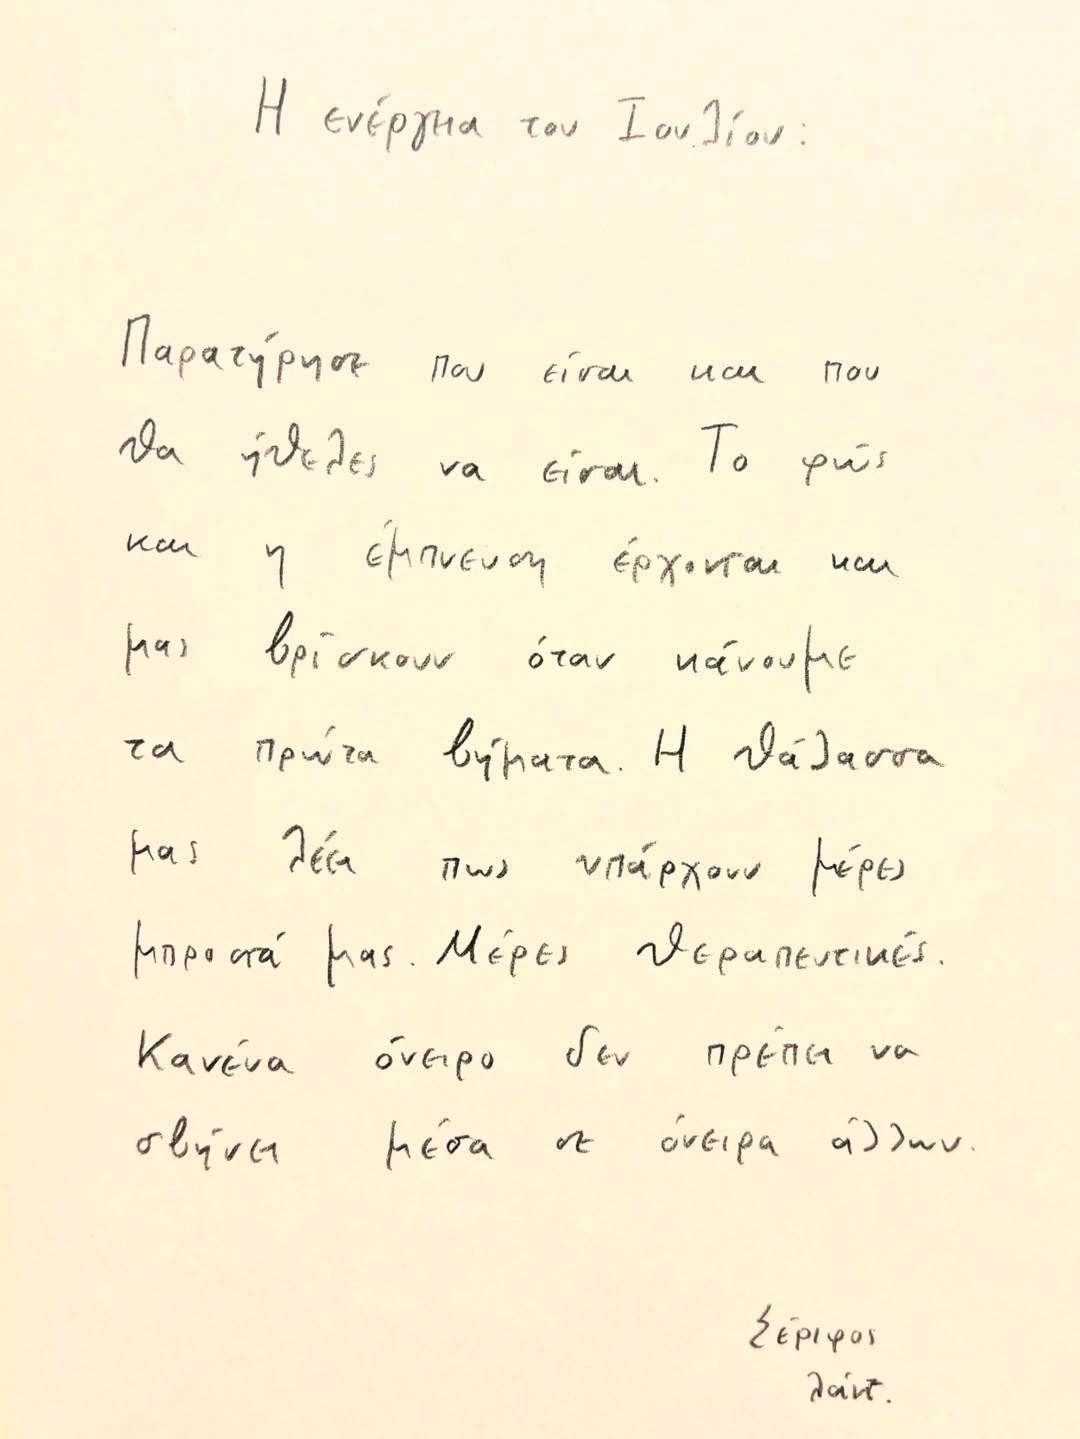 Η ενέργεια του Ιουλίου:
Παρατήρησε που είναι και που
θα ήθελες να είναι. Το φώς
και η έμπνευση έρχονται και
μας βρίσκουν όταν κάνουμε
τα πρώτα βήματα. Η θάλασσα
μας λέει πως υπάρχουν μέρες
μπροστά μας. Μέρες θεραπευτικές.
Κανένα όνειρο δεν πρέπει να
σβήνει μέσα σε όνειρα άλλων.
Σέριφος
λάντ.